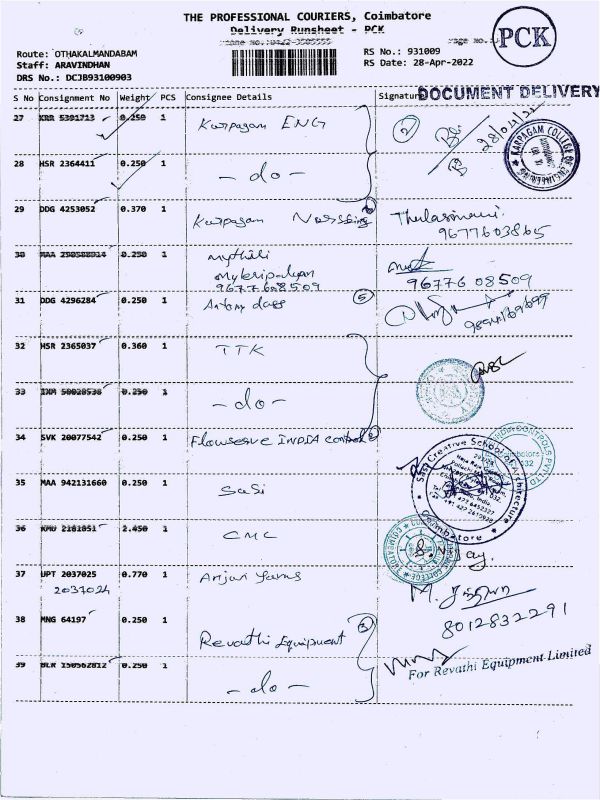 THE PROFESSIONAL COURIERS, Coimbatore
Delivery Runsheet - PCK
PCK
Route: OTHAKALMANDABAM
RS No.: 931009
Staff: ARAVINDHAN
RS Date: 28-Apr-2022
DRS No.: DCJB93100903
DOCUMENT DELIVERY
S No Consignment No Weight PCS Consignee Details Signature
27 KRR 5391713 0.250 1 Karpagam ENG 2 28/04/22
KARPAGAM COLLEGE OF ENGINEERING
28 HSR 2364411 0.250 1 - do -
29 DDG 4253052 0.370 1 Karpagam Thulasimani
9677603865
30 MAA 290588914 0.250 1 Mythili
9677608509 96776 08509
31 DDG 4296284 0.250 1 Antony dass 5
32 HSR 2365037 0.360 1 TTK
33 IXM 50020538 0.250 1 - do -
34 SVK 20077542 0.250 1 Flowserve INDIA control
INDIA CONTROLS PVT LTD
Sasi Creative School of Architecture
Coimbatore
35 MAA 942131660 0.250 1 SaSi
36 KMU 2181051 2.450 1 CMC
S. Vijay.
37 UPT 2037025 0.770 1 Arjun Yarns
2037024
8012832291
38 MNG 64197 0.250 1 Revathi Equipment 3
For Revathi Equipment Limited
39 BLR 150562812 0.250 1 - do -